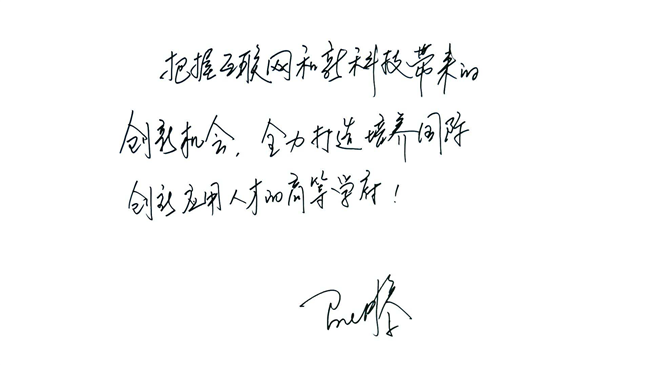 把握互联网和新科技带来的
创新机会，全力打造培养国际
创新应用人才的高等学府！